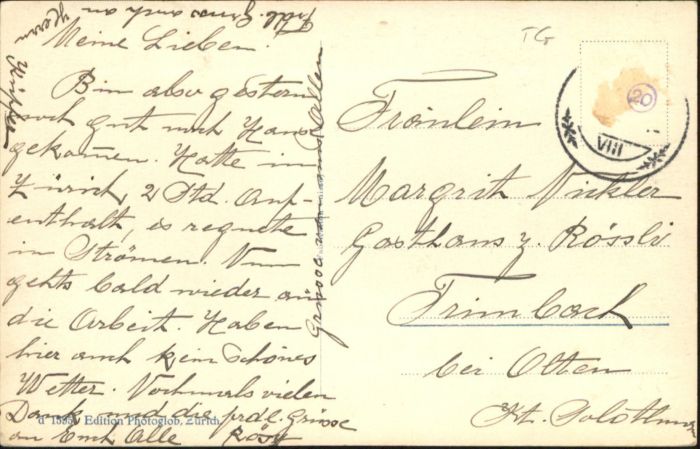 Meine Lieben!
Bin also gestern
noch gut nach Haus
gekommen. Hatte in
Zürich, 2 Std. Auf-
enthalt, es regnete
in Strömen. Nun
gehts bald wieder an
die Arbeit. Haben
hier auch kein schönes
Wetter. Nochmals vielen
Dank und die frdl. Grüsse
an Euch Alle Rösy
Grüsse von uns Allen
Frdl. Gruss auch an
Herrn
TG
20
VIII
Fräulein
Margrith Nickler
Gasthaus z. Rössli
Trimbach
bei Olten
Kt. Solothurn
Edition Photoglob, Zürich